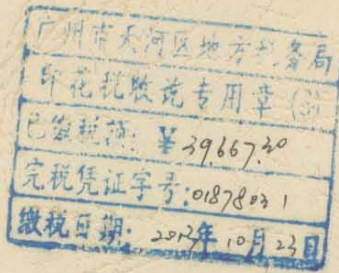 广州市天河区地方税务局
印花税收讫专用章(3)
已缴税额:¥39667.30
完税凭证字号:01878031
缴税日期:2013年10月23日